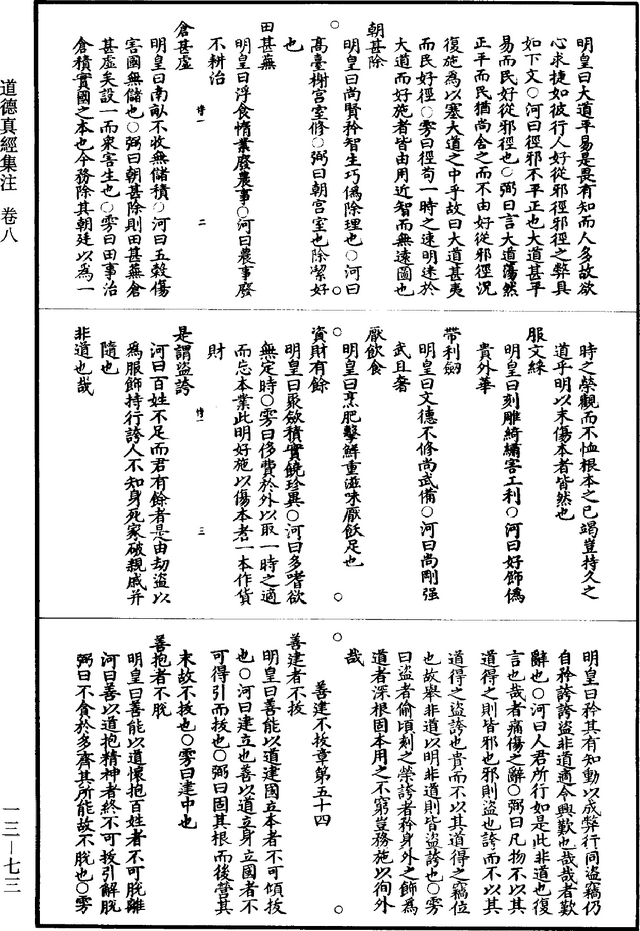 道德真經集注　卷八
一三—七三
明皇曰大道平易是畏有知而人多故欲
心求捷如彼行人好從邪徑邪徑之弊具
如下文○河曰徑邪不平正也大道甚平
易而民好從邪徑也○弼曰言大道蕩然
正平而民猶尚舍之而不由好從邪徑況
復施為以塞大道之中乎故曰大道甚夷
而民好徑○雱曰徑苟一時之速明迷於
大道而好施者皆由用近智而無遠圖也
朝甚除
明皇曰尚賢矜智生巧偽除理也○河曰
高臺榭宮室修○弼曰朝宮室也除潔好
也
田甚蕪
明皇曰浮食惰業廢農事○河曰農事廢
不耕治
二
倉甚虛
明皇曰南畝不收無儲積○河曰五穀傷
害國無儲也○弼曰朝甚除則田甚蕪倉
甚虛矣設一而衆害生也○雱曰田事治
倉積實國之本也今務除其朝廷以為一
時之榮觀而不恤根本之已竭豈持久之
道乎明以末傷本者皆然也
服文綵
明皇曰刻雕綺繡害工利○河曰好飾偽
貴外華
帶利劒
明皇曰文德不修尚武備○河曰尚剛强
武且奢
厭飲食
明皇曰烹肥擊鮮重滋味厭飫足也
資財有餘
明皇曰聚斂積實饒珍異○河曰多嗜欲
無定時○雱曰侈費於外以取一時之適
而忘本業此明好施以傷本者一本作貨
財
三
是謂盜誇
河曰百姓不足而君有餘者是由劫盜以
為服飾持行誇人不知身死家破親戚并
隨也
非道也哉
明皇曰矜其有知動以成弊行同盜竊仍
自矜誇誇盜非道適令興歎也哉哉者歎
辭也○河曰人君所行如是此非道也復
言也哉者痛傷之辭○弼曰凡物不以其
道得之則皆邪也邪則盜也誇而不以其
道得之盜誇也貴而不以其道得之竊位
也故舉非道以明非道則皆盜誇也○雱
曰盜者偷頃刻之榮誇者矜身外之飾為
道者深根固本用之不窮豈務施以徇外
哉
善建不拔章第五十四
善建者不拔
明皇曰善能以道建國立本者不可傾拔
也○河曰建立也善以道立身立國者不
可得引而拔也○弼曰固其根而後營其
末故不拔也○雱曰建中也
善抱者不脫
明皇曰善能以道懷抱百姓者不可脫離
河曰善以道抱精神者終不可拔引解脫
弼曰不貪於多齊其所能故不脫也○雱